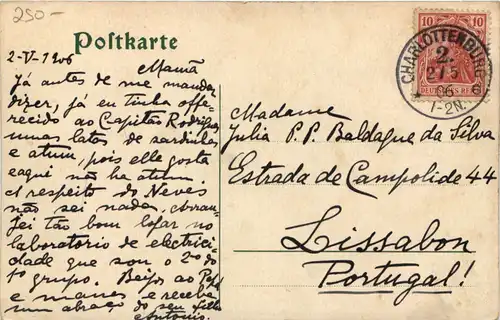 250-
Postkarte
10 10
DEUTSCHES REICH
CHARLOTTENBURG
2.
2/5
06
1-2N.
2-V-1906
Mamã
Já antes de me mandar
dizer, já eu tinha offe-
recido ao Capitão Rodrigues
umas latas de sardinhas
e atum, pois elle gosta
e aqui não ha atum.
A respeito do Neves
não sei nada. Arran-
jei tão bom lugar no
laboratorio de electrici-
dade que sou o 2º do
1º grupo. Beijos ao Papá
e manos e receba
um abraço do seu filho
Antonio.
Madame
Julia P. P. Baldaque da Silva
Estrada de Campolide 44
Lissabon
Portugal!